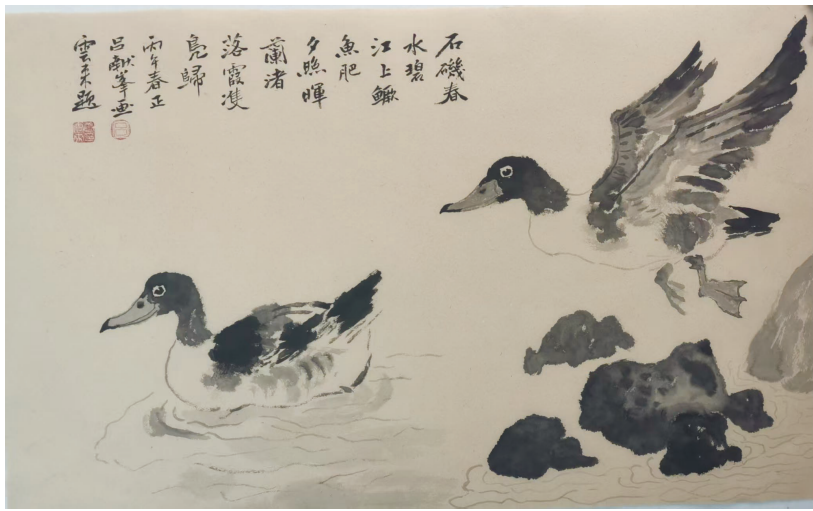 石磯春
水碧
江上鱖
魚肥
夕照暉
蘭渚
落霞隻
鳧歸
丙午春正
呂獻峯画
雲来題